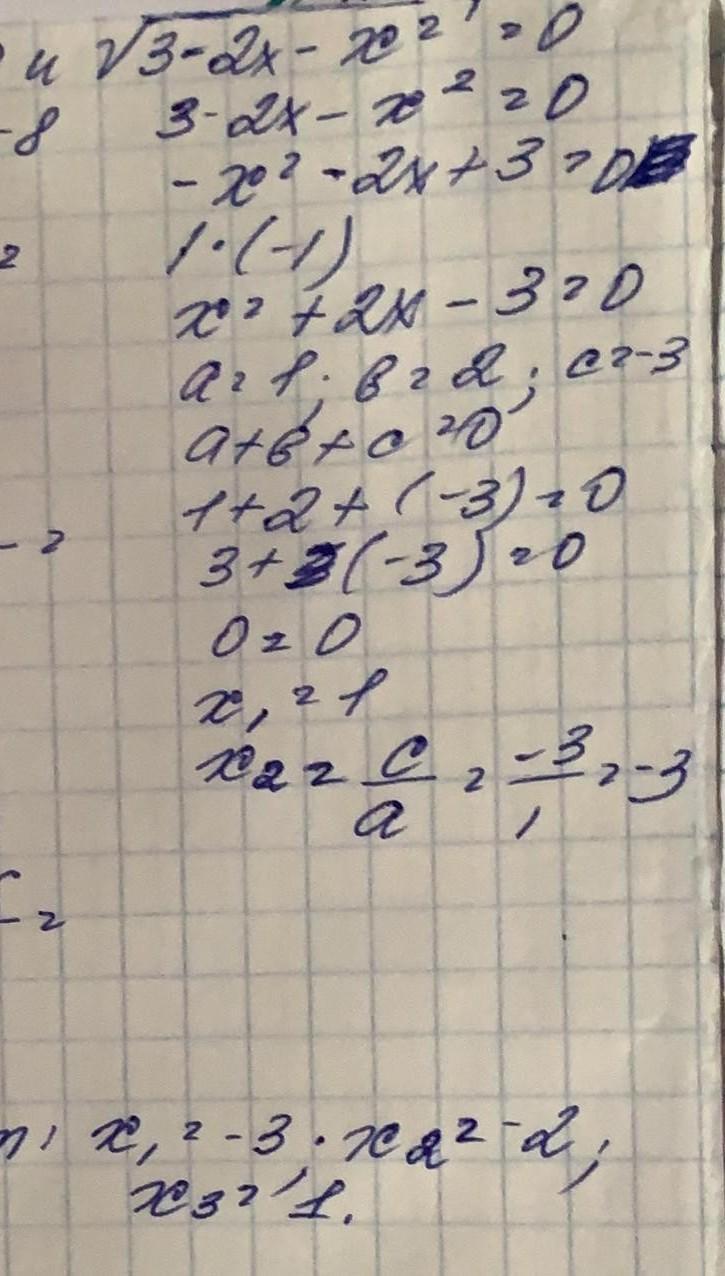 и √3-2x-x² = 0
-8 3-2x-x² = 0
-x²-2x+3=0
2 | · (-1)
x²+2x-3=0
a=1; в=2; c=-3
a+в+c=0
1+2+(-3)=0
- = 3+(-3)=0
0=0
x₁=1
x₂=c/a=-3/1=-3
=
x₁=-3; x₂=-2;
x₃=1.